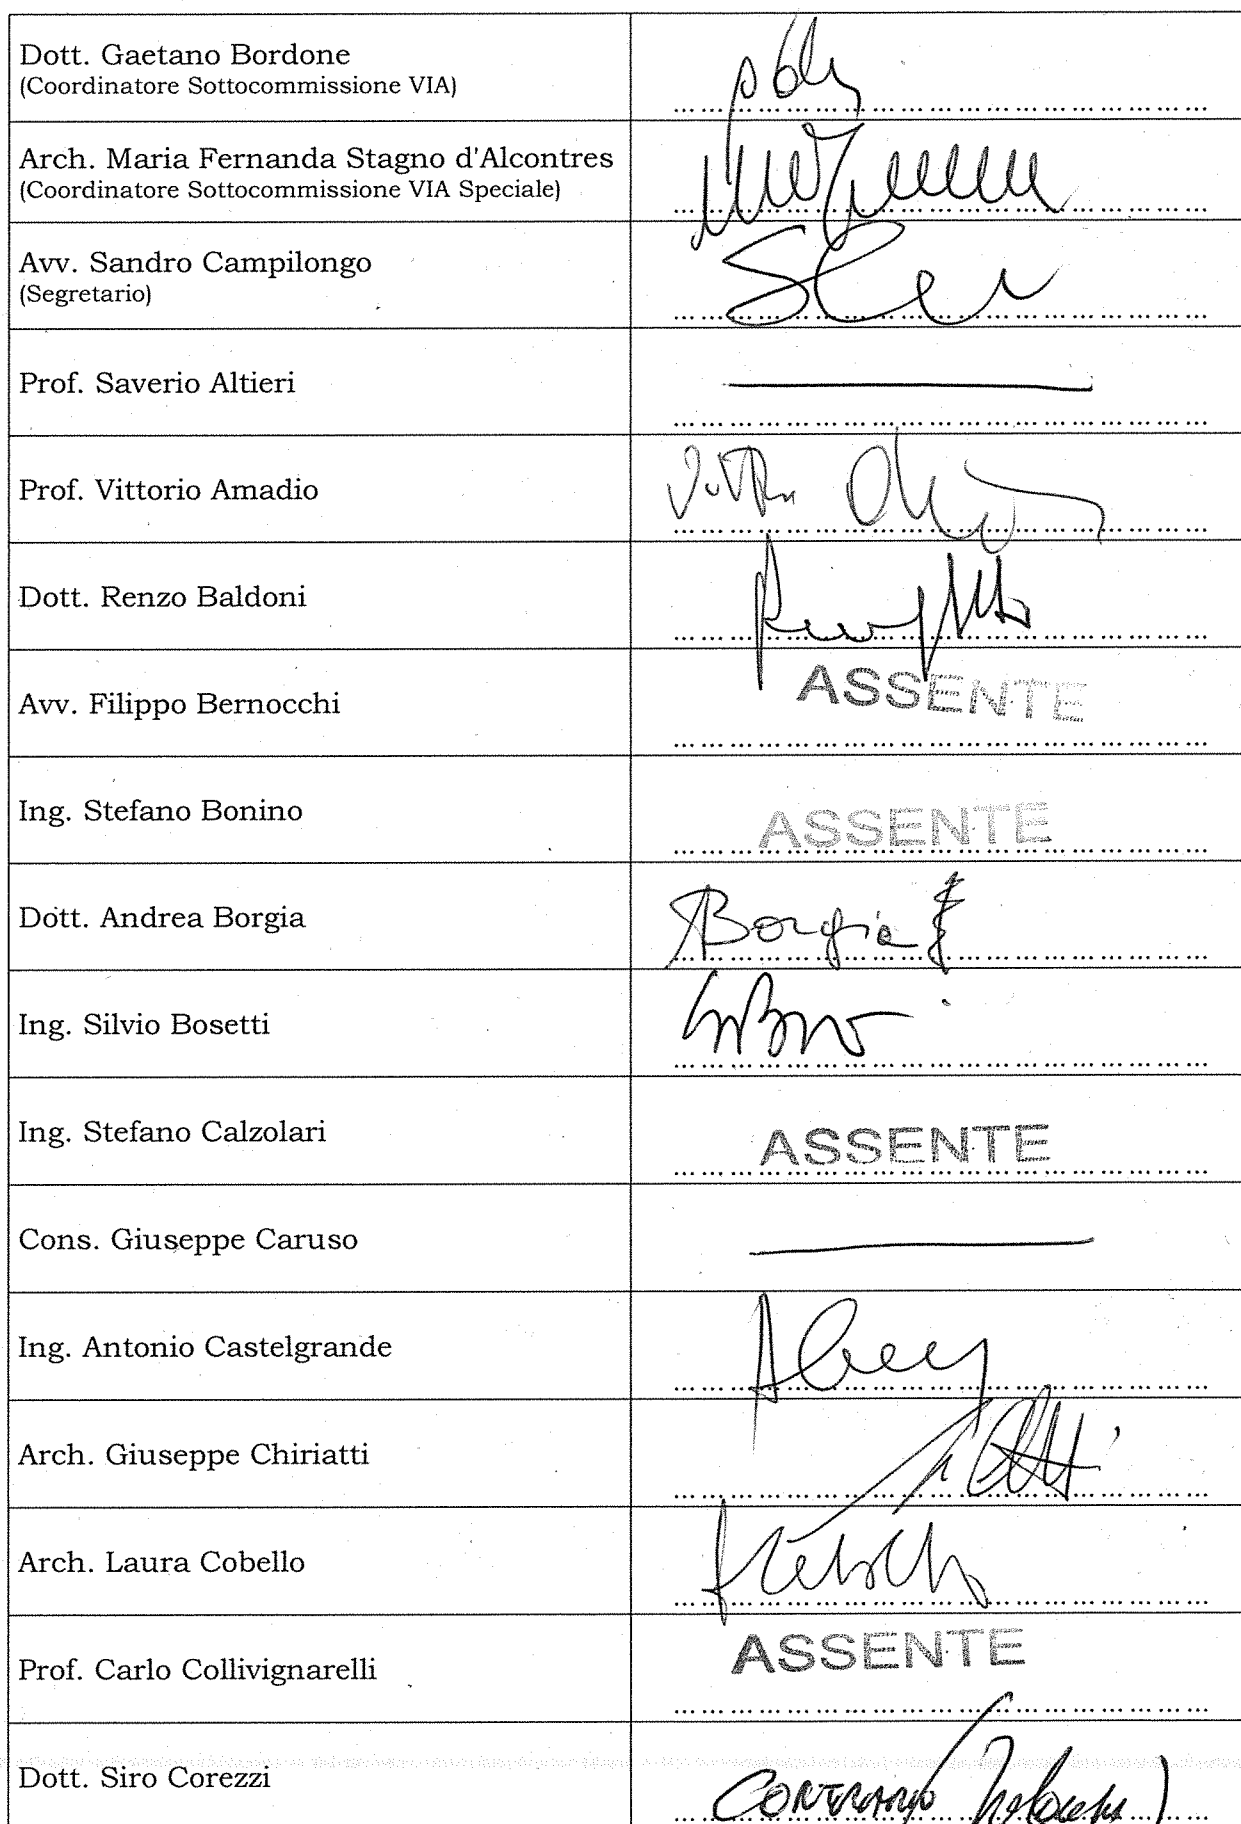 Dott. Gaetano Bordone
(Coordinatore Sottocommissione VIA)
Arch. Maria Fernanda Stagno d'Alcontres
(Coordinatore Sottocommissione VIA Speciale)
Avv. Sandro Campilongo
(Segretario)
Prof. Saverio Altieri
Prof. Vittorio Amadio
Dott. Renzo Baldoni
Avv. Filippo Bernocchi
ASSENTE
Ing. Stefano Bonino
ASSENTE
Dott. Andrea Borgia
Borgia
Ing. Silvio Bosetti
Ing. Stefano Calzolari
ASSENTE
Cons. Giuseppe Caruso
Ing. Antonio Castelgrande
Arch. Giuseppe Chiriatti
Arch. Laura Cobello
Prof. Carlo Collivignarelli
ASSENTE
Dott. Siro Corezzi
CONTRARIO